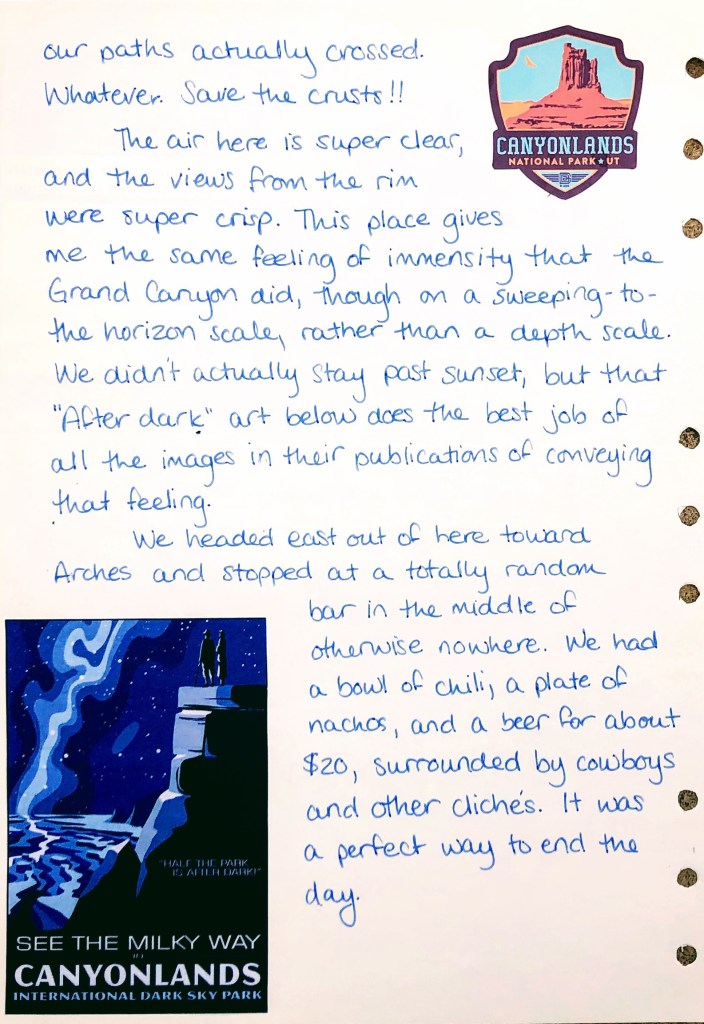 our paths actually crossed.
Whatever. Save the crusts!!
CANYONLANDS
NATIONAL PARK ★ UT
The air here is super clear,
and the views from the rim
were super crisp. This place gives
me the same feeling of immensity that the
Grand Canyon did, though on a sweeping-to-
the horizon scale, rather than a depth scale.
We didn't actually stay past sunset, but that
"After dark" art below does the best job of
all the images in their publications of conveying
that feeling.
We headed east out of here toward
Arches and stopped at a totally random
bar in the middle of
otherwise nowhere. We had
a bowl of chili, a plate of
nachos, and a beer for about
$20, surrounded by cowboys
and other cliché's. It was
a perfect way to end the
day.
"HALF THE PARK
IS AFTER DARK!"
SEE THE MILKY WAY
IN
CANYONLANDS
INTERNATIONAL DARK SKY PARK